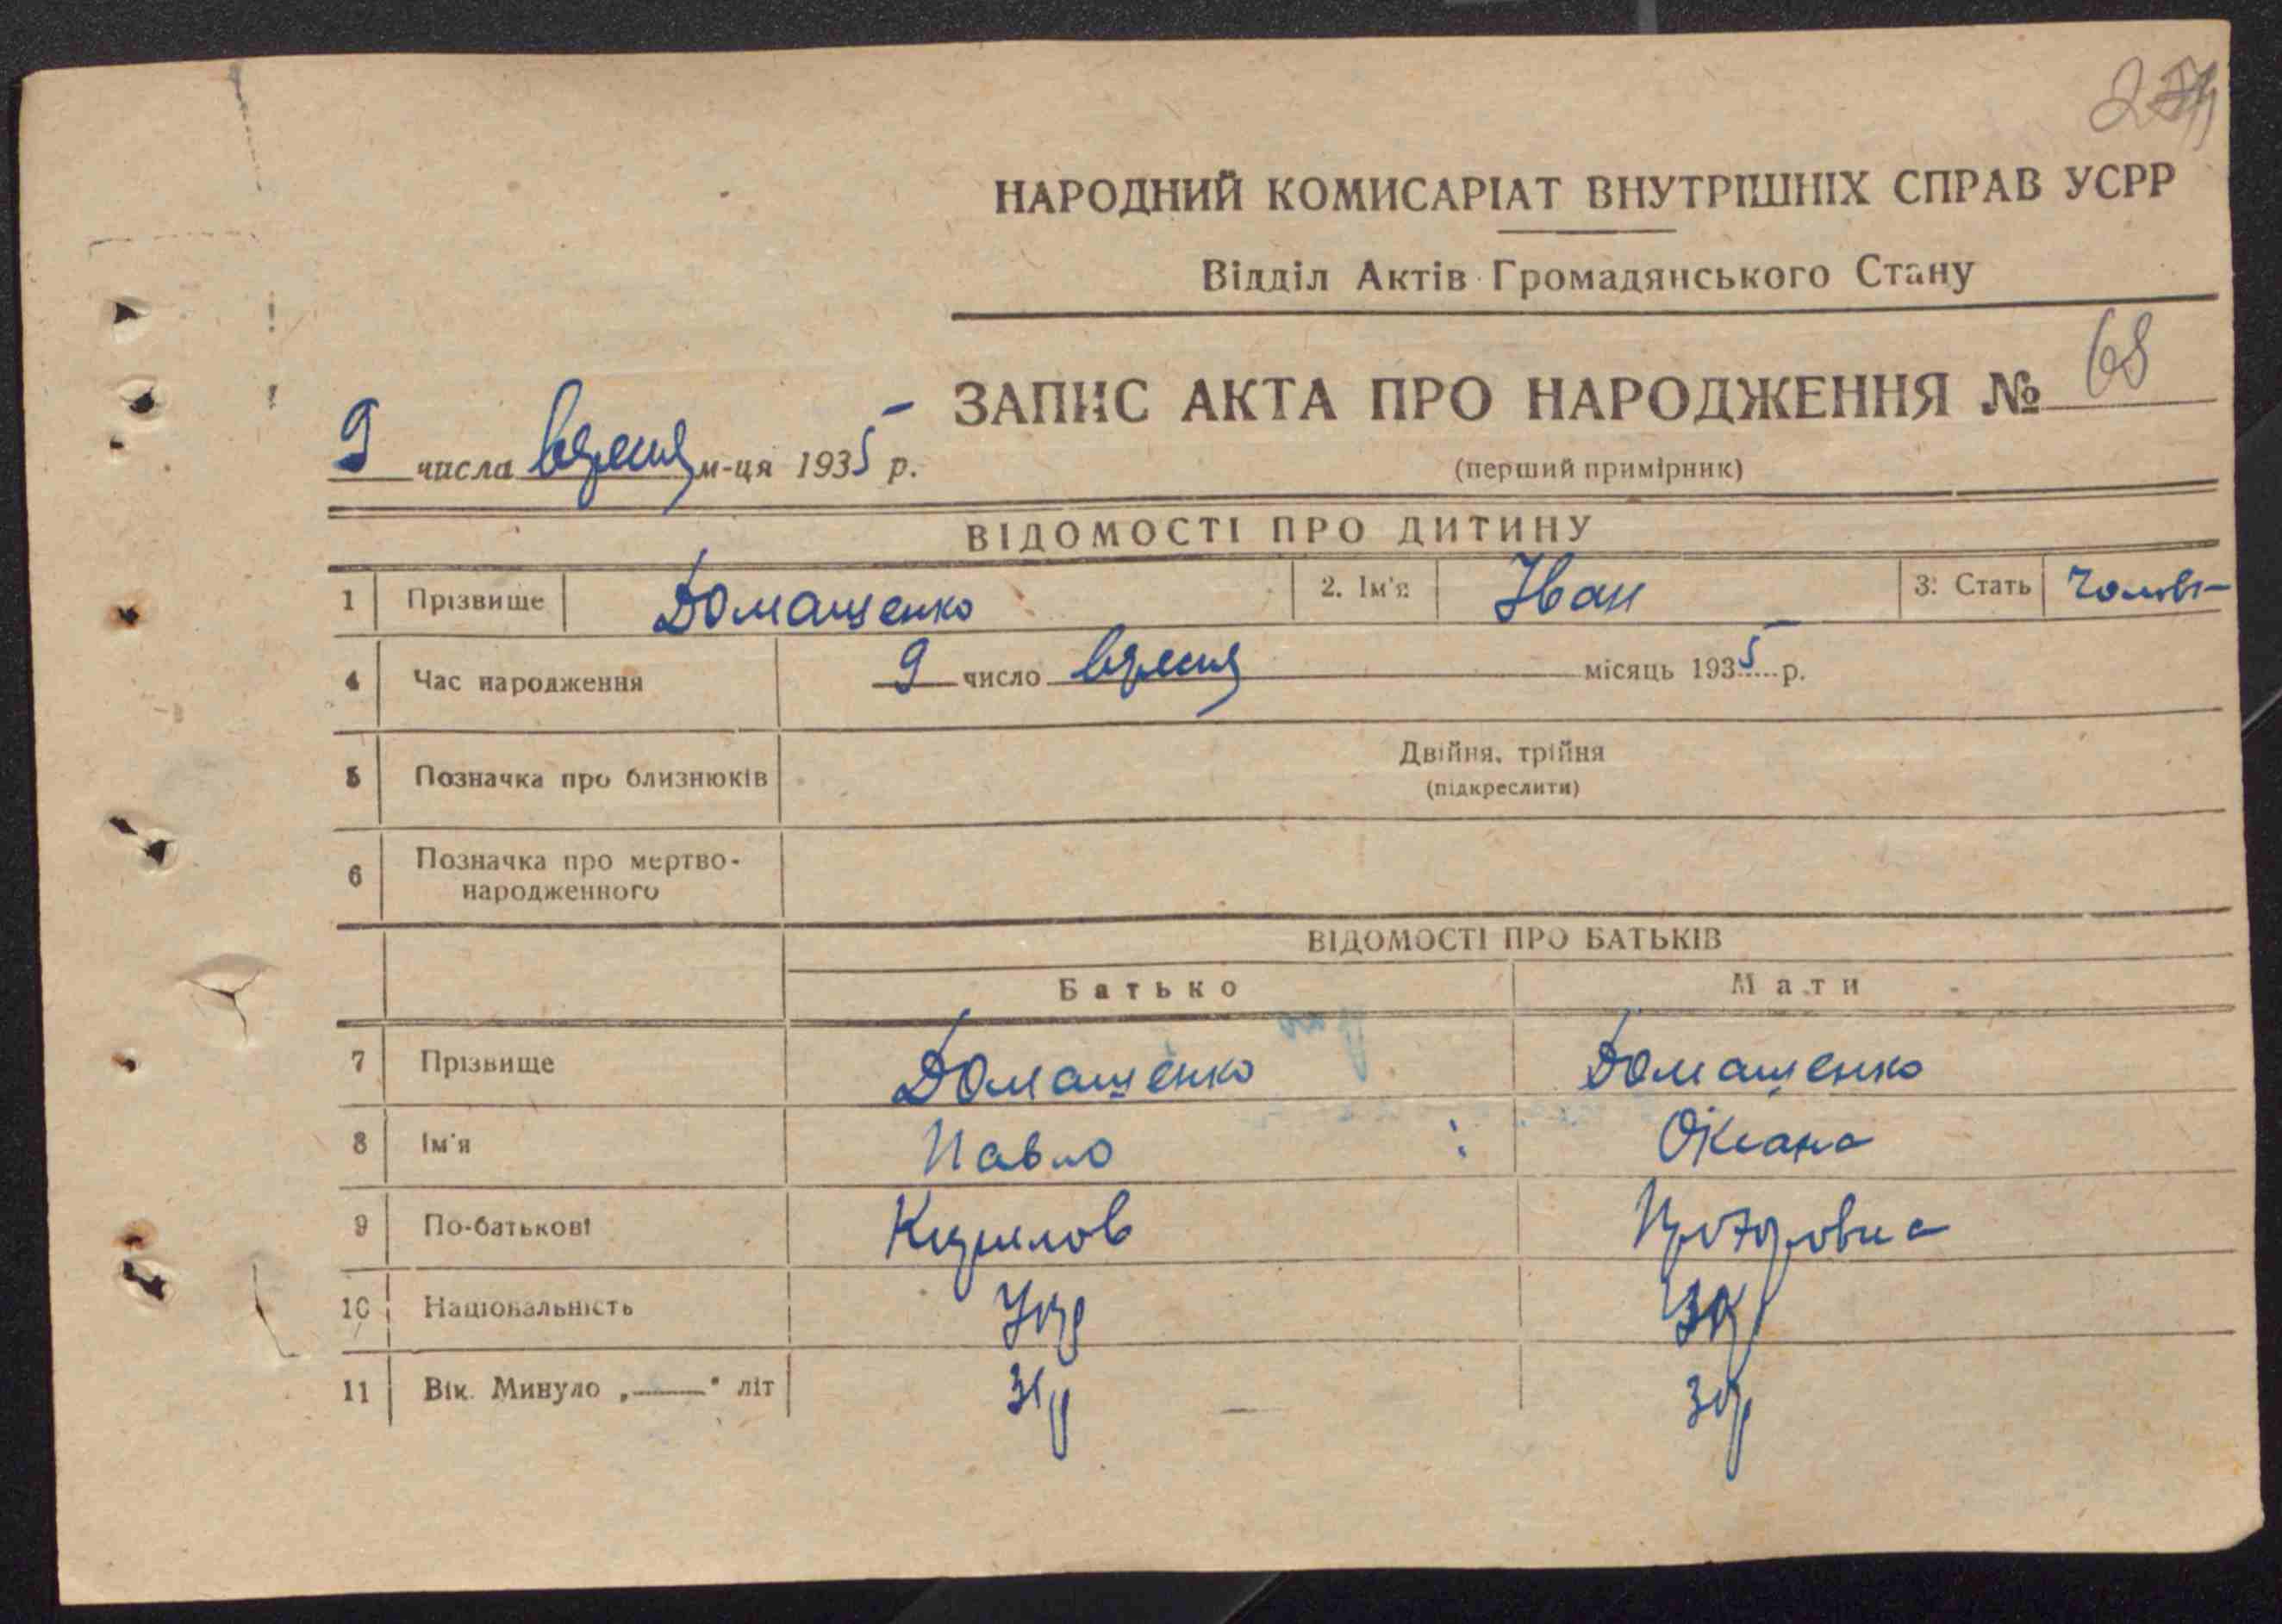 НАРОДНИЙ КОМИСАРІАТ ВНУТРІШНІХ СПРАВ УСРР
Відділ Актів Громадянського Стану
ЗАПИС АКТА ПРО НАРОДЖЕННЯ № 68
9 числа вересня м-ця 1935 р.
(перший примірник)
ВІДОМОСТІ ПРО ДИТИНУ
1 Прізвище Домашенко 2. Ім'я Іван 3. Стать Чолові-
4 Час народження 9 число вересня місяць 1935 р.
5 Позначка про близнюків Двійня, трійня
(підкреслити)
6 Позначка про мертво-
народженного
ВІДОМОСТІ ПРО БАТЬКІВ
Батько Мати
7 Прізвище Домашенко Домашенко
8 Ім'я Павло Оксана
9 По-батькові Кирилов
10 Національність Укр Укр
11 Вік. Минуло „——" літ